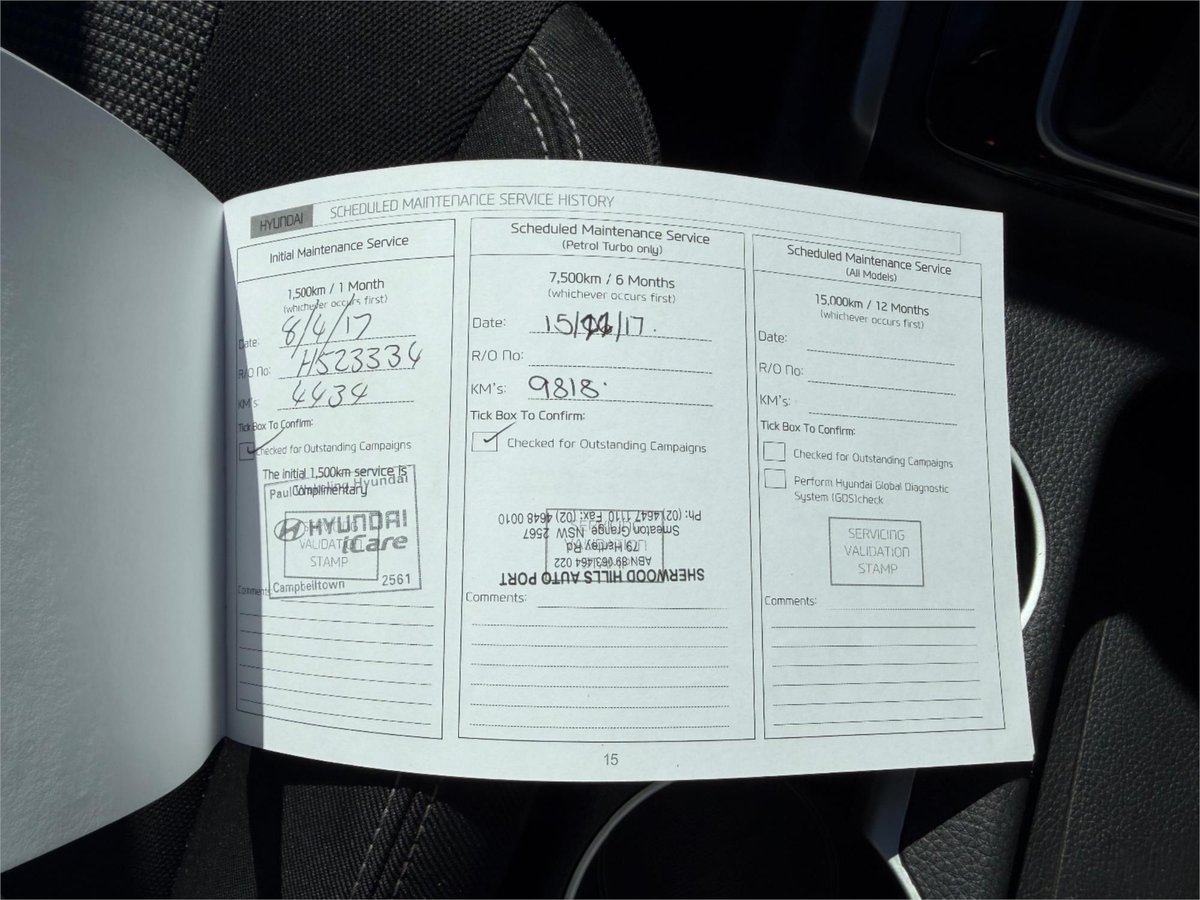 HYUNDAI SCHEDULED MAINTENANCE SERVICE HISTORY
Initial Maintenance Service
1,500km / 1 Month
(whichever occurs first)
Date: 8/4/17
R/O No: H523334
KM's: 4434
Tick Box To Confirm:
Checked for Outstanding Campaigns
The initial 1,500km service is
Complimentary
Paul Wakeling Hyundai
HYUNDAI
iCare
SERVICING
VALIDATION
STAMP
Campbelltown 2561
Comments:
Scheduled Maintenance Service
(Petrol Turbo only)
7,500km / 6 Months
(whichever occurs first)
Date: 15/ /17.
R/O No:
KM's: 9818
Tick Box To Confirm:
Checked for Outstanding Campaigns
SHERWOOD HILLS AUTO PORT
ABN 89 063 464 022
79 Hartley Rd
Smeaton Grange NSW 2567
Ph: (02) 4647 1110 Fax: (02) 4648 0010
SERVICING
VALIDATION
Comments:
Scheduled Maintenance Service
(All Models)
15,000km / 12 Months
(whichever occurs first)
Date:
R/O No:
KM's:
Tick Box To Confirm:
Checked for Outstanding Campaigns
Perform Hyundai Global Diagnostic
System (GDS)check
SERVICING
VALIDATION
STAMP
Comments:
15